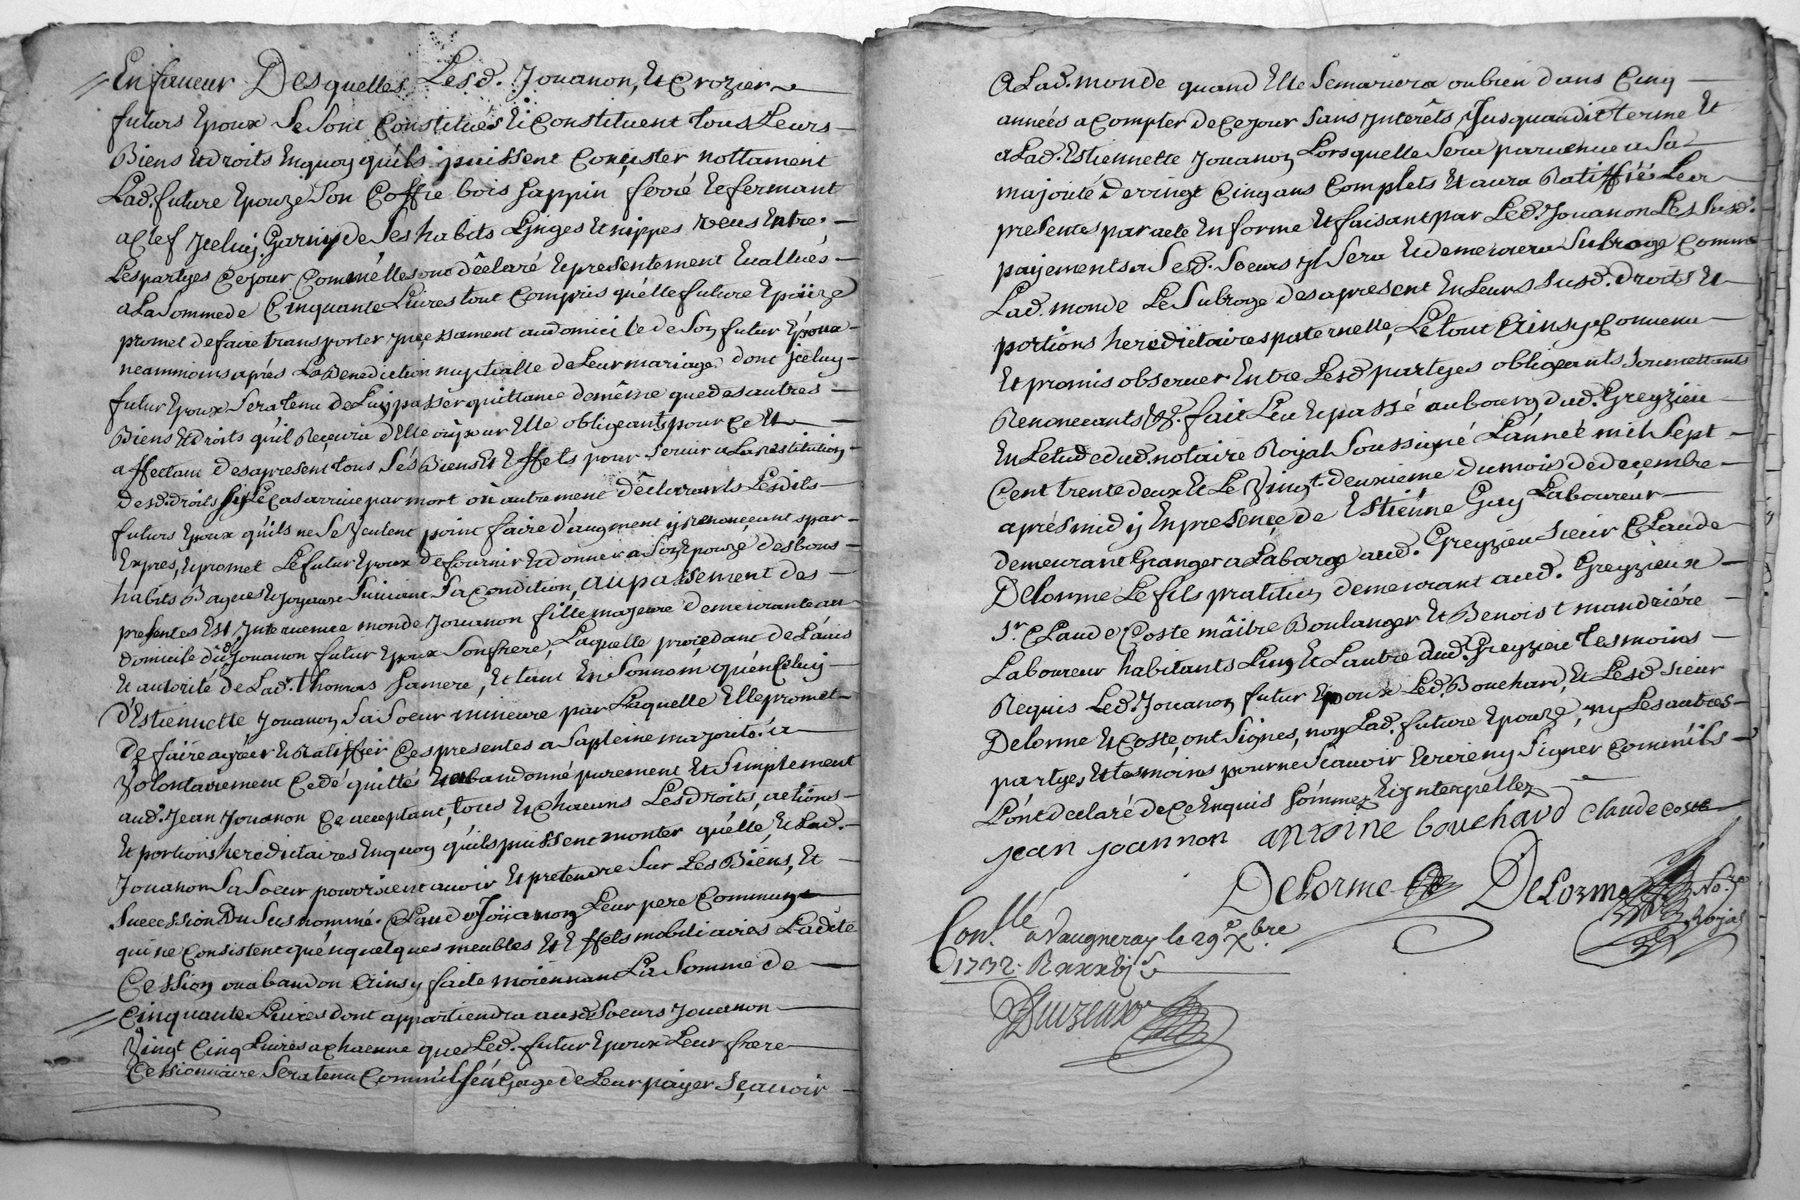 En faveur Desquelles Lesd. Jouanon, Et Crozier
futurs Epoux Se Sont Constitués Et Constituent tous Leurs
Biens Et droits En quoy qu'ils puissent Conçister nottament
Lad. future Epouze Son Coffre bois Sappin ferré Et fermant
a Clef Jceluy Garny de Ses habits Linges Et nippes veus Entre
Les partyes Ce jour Comm'elles ont dêclaré Et presentement Evallués
a La Somme de Cinquante Livres tout Compris qu'elle future Epouze
promet de faire transporter jncessament au domicile de Son futur Epoux
neammoins aprés La Benediction nuptialle de Leur mariage dont jceluy
futur Epoux Sera tenu de Luy passer quittance de même que des autres
Biens Et droits qu'il Reçevra d'Elle ou pour Elle obligeants pour Ce Et
affectant des apresent tous Sés Biens Et Effets pour Servir a La Restitution
desd. droits Si Le Cas arrive par mort oû autrement dêclarants Lesdits
futurs Epoux qu'ils ne Se Veulent point faire d'augment y renonceant par
Expres, Et promet Le futur Epoux de fournir Et donner a Son Epouze des bons
habits Bagues Et joyaux Suivant Sa Condition, au passement des
presentes Est Intervenue monde Jouanon fille majeure demeurante au
domicile dud. Jouanon futur Epoux Son frere, Laquelle procedant de L'avis
Et autorité de Lad. thomas Sa mere, Et tant En Son nom qu'en Celuy
d'Estiennette Jouanon Sa Soeur mineure par Laquelle Elle promet
de faire agréer Et Ratiffier Ces presentes a Sa pleine majorité. a
Volontairement Cedé quitté Et abandonné purement Et Simplement
aud. Jean Jouanon Ce acceptant, tous Et Chacuns Les droits, actions
Et portions hereditaires En quoy qu'ils puissent monter qu'elle, Et Lad.
Jouanon Sa Soeur pouvoient avoir Et pretendre Sur Les Biens, Et
Succession Du Susnommé Claude Joüanon Leur pere Commun
qui ne Consistent qu'en quelques meubles Et Effets mobiliaires Ladite
Cession ou abandon Ainsy faite moiennant La Somme de
Cinquante Livres dont appartiendra ausd. Soeurs Jouanon
Vingt Cinq Livres a Chacune que Led. futur Epoux Leur frere
Cessionnaire Sera tenu Comm'il S'en Gage de Leur payer Sçavoir
a Lad. monde quand Elle Se mariera ou bien dans Cinq
années a Compter de Ce jour Sans Jnterêts Jusqu'audit terme Et
a Lad. Estiennette Jouanon Lorsquelle Sera parvenue a Sa
majorité de vingt Cinq ans Complets Et aura Ratiffiée Les
presentes par acte En forme Et faisant par Led. Jouanon Les Susd.
payements a Sesd. Soeurs jl Sera Et demeurera Subrogé Comme
Lad. monde Le Subroge des apresent En Leurs Susd. droits Et
portions hereditaires paternelle, Le tout Ainsy Convenu
Et promis observer Entre Lesd. partyes obligeants Soumettants
Renonceants &c. fait Leu Et passé au bourg dud. Greyzieu
En L'etude dud. notaire Royal Soussigné L'année mil Sept
Cent trente deux Et Le Vingt deuxieme du mois de deçembre
aprés midy En presençe de Estienne Guy Laboureur
demeurant Granger a Labarge aud. Greyzieu Sieur Claude
Delorme Le fils pratitien demeurant aud. Greyzieux
Sr. Claude Coste maître Boulanger Et Benoist mandriére
Laboureur habitants L'un Et L'autre dud. Greyzieu tesmoins
Requis Led. Jouanon futur Epoux Led. Bouchard, Et Lesd. Sieur
Delorme Et Coste, ont Signés, non Lad. future Epouze, ny Les autres
partyes Et tesmoins pour ne Scavoir Ecrire ny Signer Comm'ils
L'ont declaré de Ce Enquis Sommez Et jnterpellez
jean joannon antoine bouchard Claude Coste
Delorme Delorme No.re Royal
Con.llé a Vaugneray le 29e Xbre
1732.